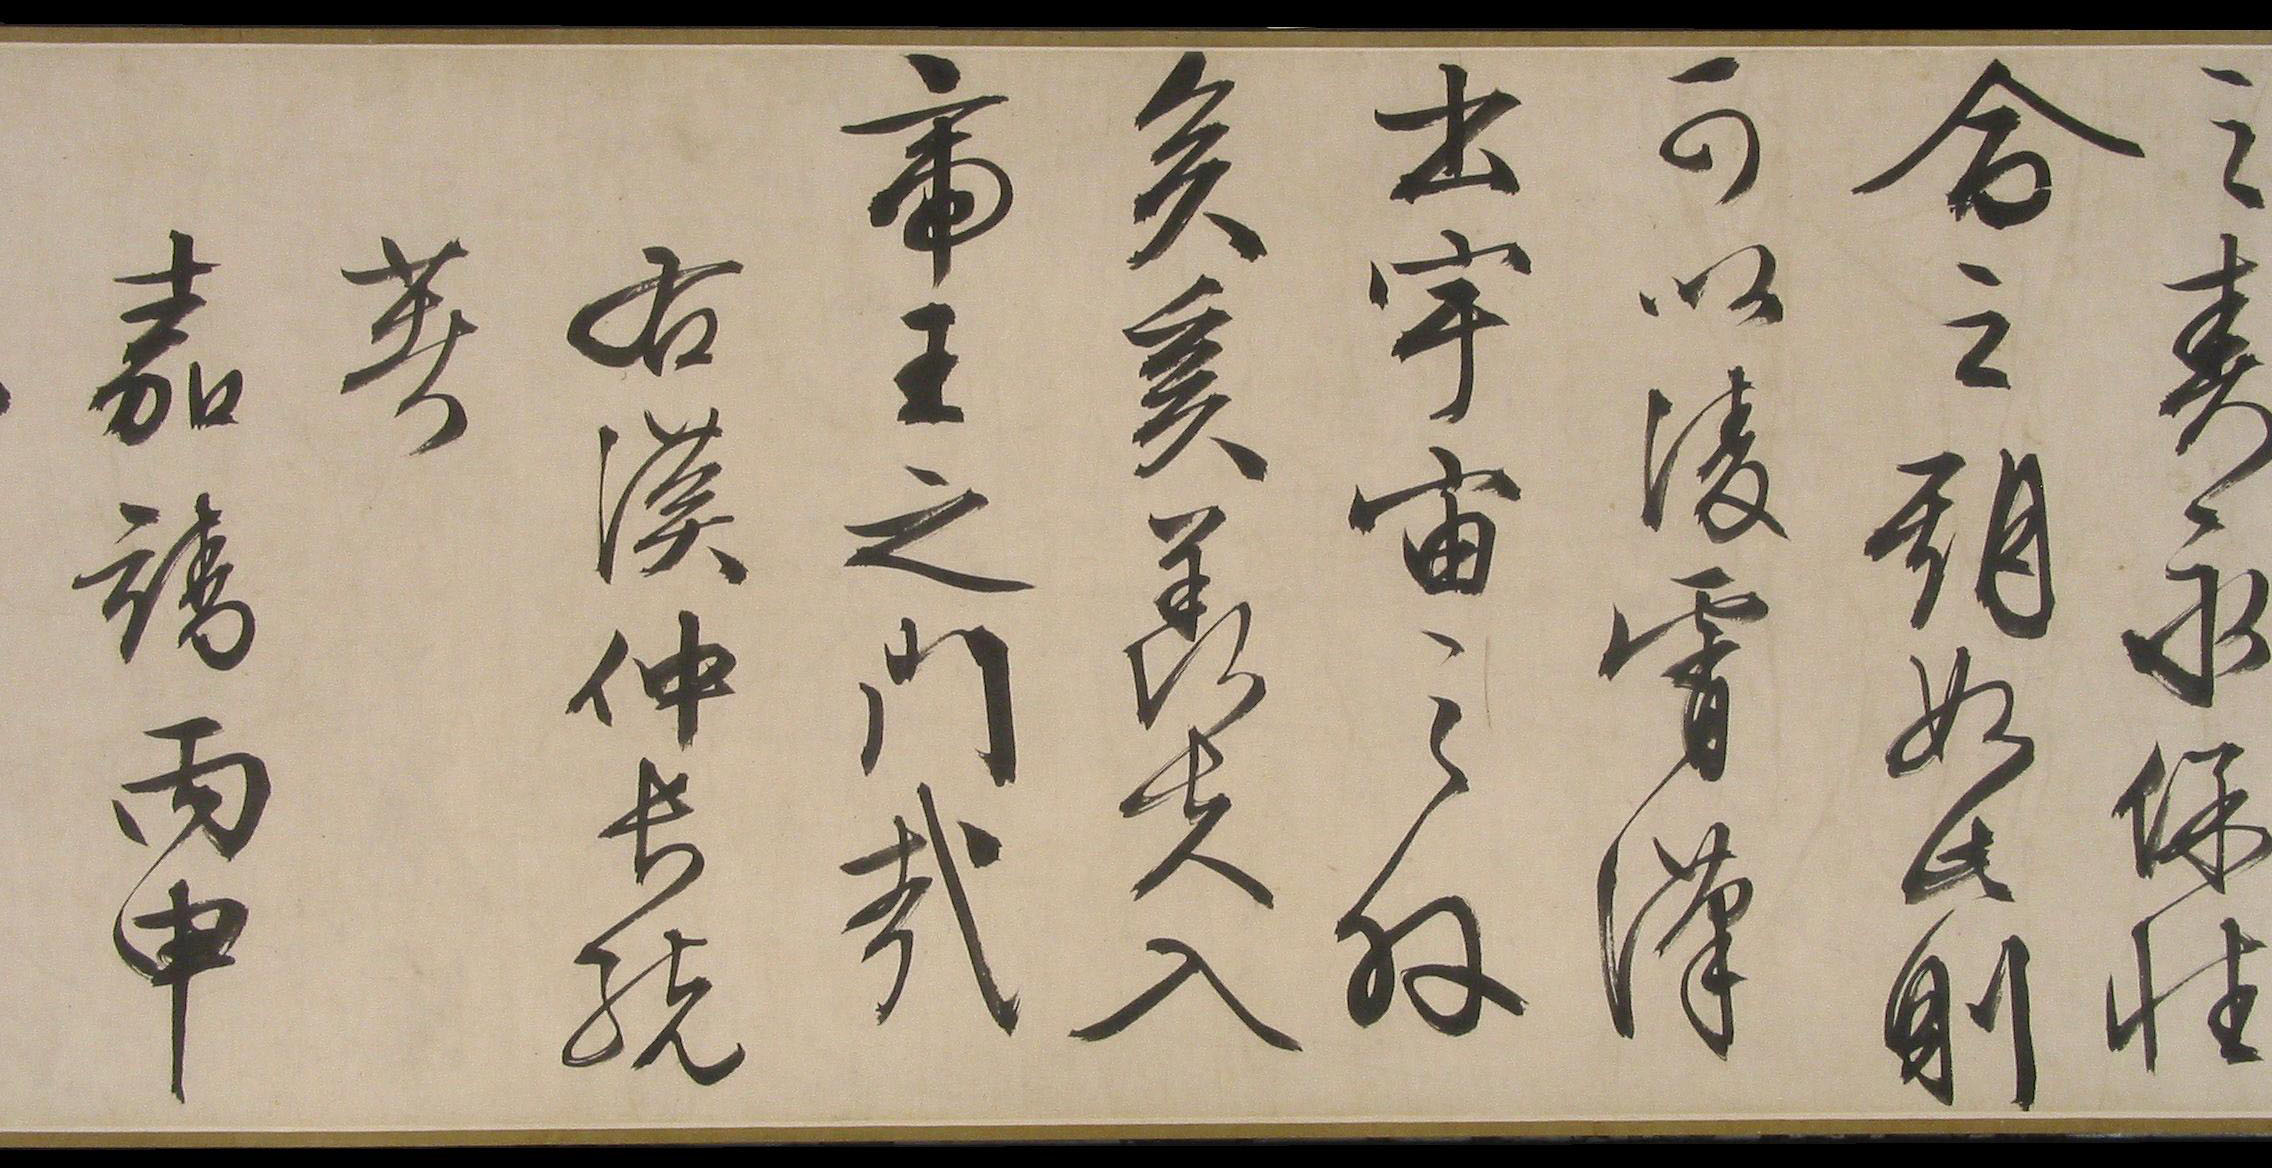 之責永保性
命之期如此則
可以淩霄漢
出宇宙之外
矣奚羨夫入
帝王之門哉
右漢仲長統
嘉靖丙申